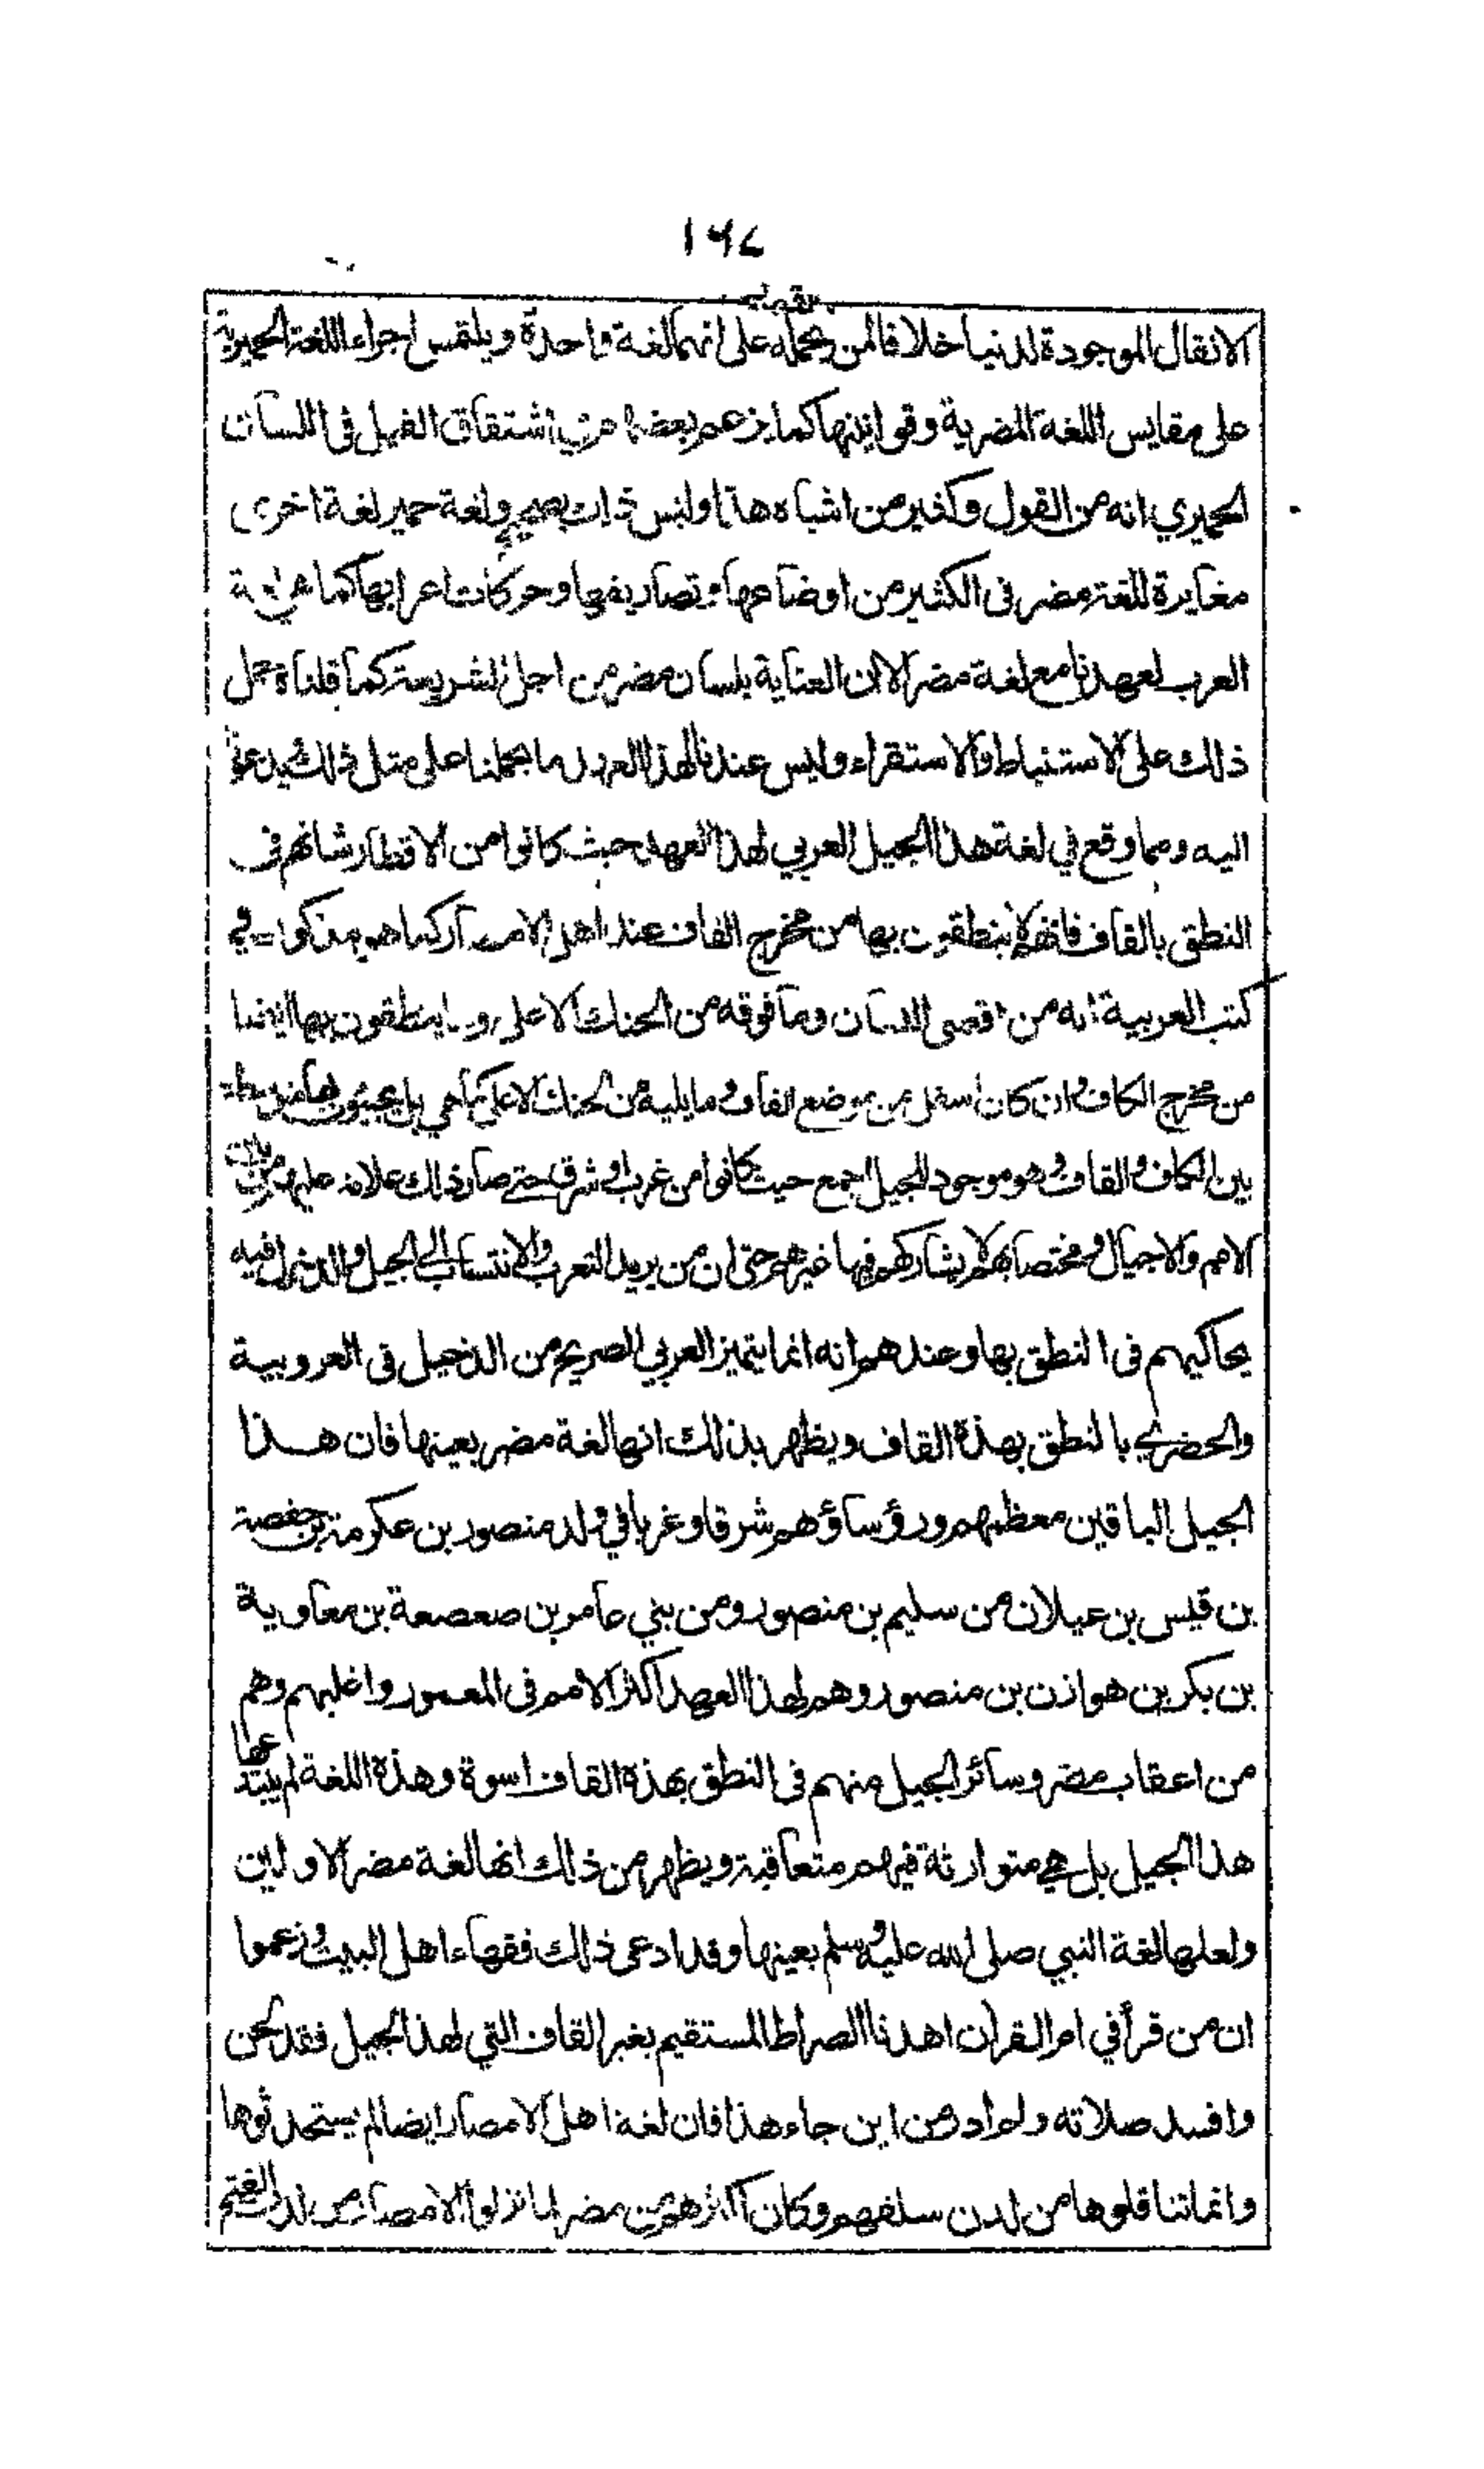 ١٦٧
الانقال الموجودة لدنيا خلافا لمن يحمله على انهما لغة واحدة ويلتمس اجراء اللغة الحميرية
على مقايس اللغة المضرية وقوانينها كما يزعم بعضهم من اشتقاق القيل في اللسان
الحميري انه من القول وكثير من اشباه هذا وليس ذلك بصحيح ولغة حمير لغة اخرى
مغايرة للغة مضر في الكثير من اوضاعها وتصاريفها وحركات اعرابها كما هي لغة
العرب لعهدنا مع لغة مضر الا ان العناية بلسان مضر من اجل الشريعة كما قلناه حمل
ذلك على الاستنباط والاستقراء وليس عندنا لهذا العهد ما يحملنا على مثل ذلك ويدعونا
اليه ومما وقع في لغة هذا الجيل العربي لهذا العهد حيث كانوا من الاقطار شانهم في
النطق بالقاف فانهم لا ينطقون بها من مخرج القاف عند اهل الامصار كما هو مذكور في
كتب العربية انه من اقصى اللسان وما فوقه من الحنك الاعلى وما ينطقون بها ايضا
من مخرج الكاف وان كان اسفل من موضع القاف وما يليه من الحنك الاعلى كما هي بل يجيئون بها متوسطة
بين الكاف والقاف وهو موجود للجيل اجمع حيث كانوا من غرب او شرق حتى صار ذلك علامة عليهم من بين
الامم والاجيال ومختصا بهم لا يشاركهم فيها غيرهم حتى ان من يريد التعرب والانتساب الى الجيل والدخول فيه
يحاكيهم في النطق بها وعندهم انه انما يتميز العربي الصريح من الدخيل في العروبية
والحضري بالنطق بهذه القاف ويظهر بذلك انها لغة مضر بعينها فان هذا
الجيل الباقين معظمهم ورؤساؤهم شرقا وغربا في ولد منصور بن عكرمة بن خفصة
بن قيس بن عيلان من سليم بن منصور ومن بني عامر بن صعصعة بن معاوية
بن بكر بن هوازن بن منصور وهم لهذا العهد اكثر الامم في المعمور واغلبهم وهم
من اعقاب مضر وسائر الجيل منهم في النطق بهذه القاف اسوة وهذه اللغة لم يبتدعها
هذا الجيل بل هي متوارثة فيهم متعاقبة ويظهر من ذلك انها لغة مضر الاولين
ولعلها لغة النبي صلى الله عليه وسلم بعينها وقد ادعى ذلك فقهاء اهل البيت وزعموا
ان من قرأ في ام القران اهدنا الصراط المستقيم بغير القاف التي لهذا الجيل فقد لحن
وافسد صلاته ولم ادر من اين جاء هذا فان لغة اهل الامصار ايضا لم يستحدثوها
وانما تناقلوها من لدن سلفهم وكان اكثرهم من مضر لما نزلوا الامصار من لدن الفتح